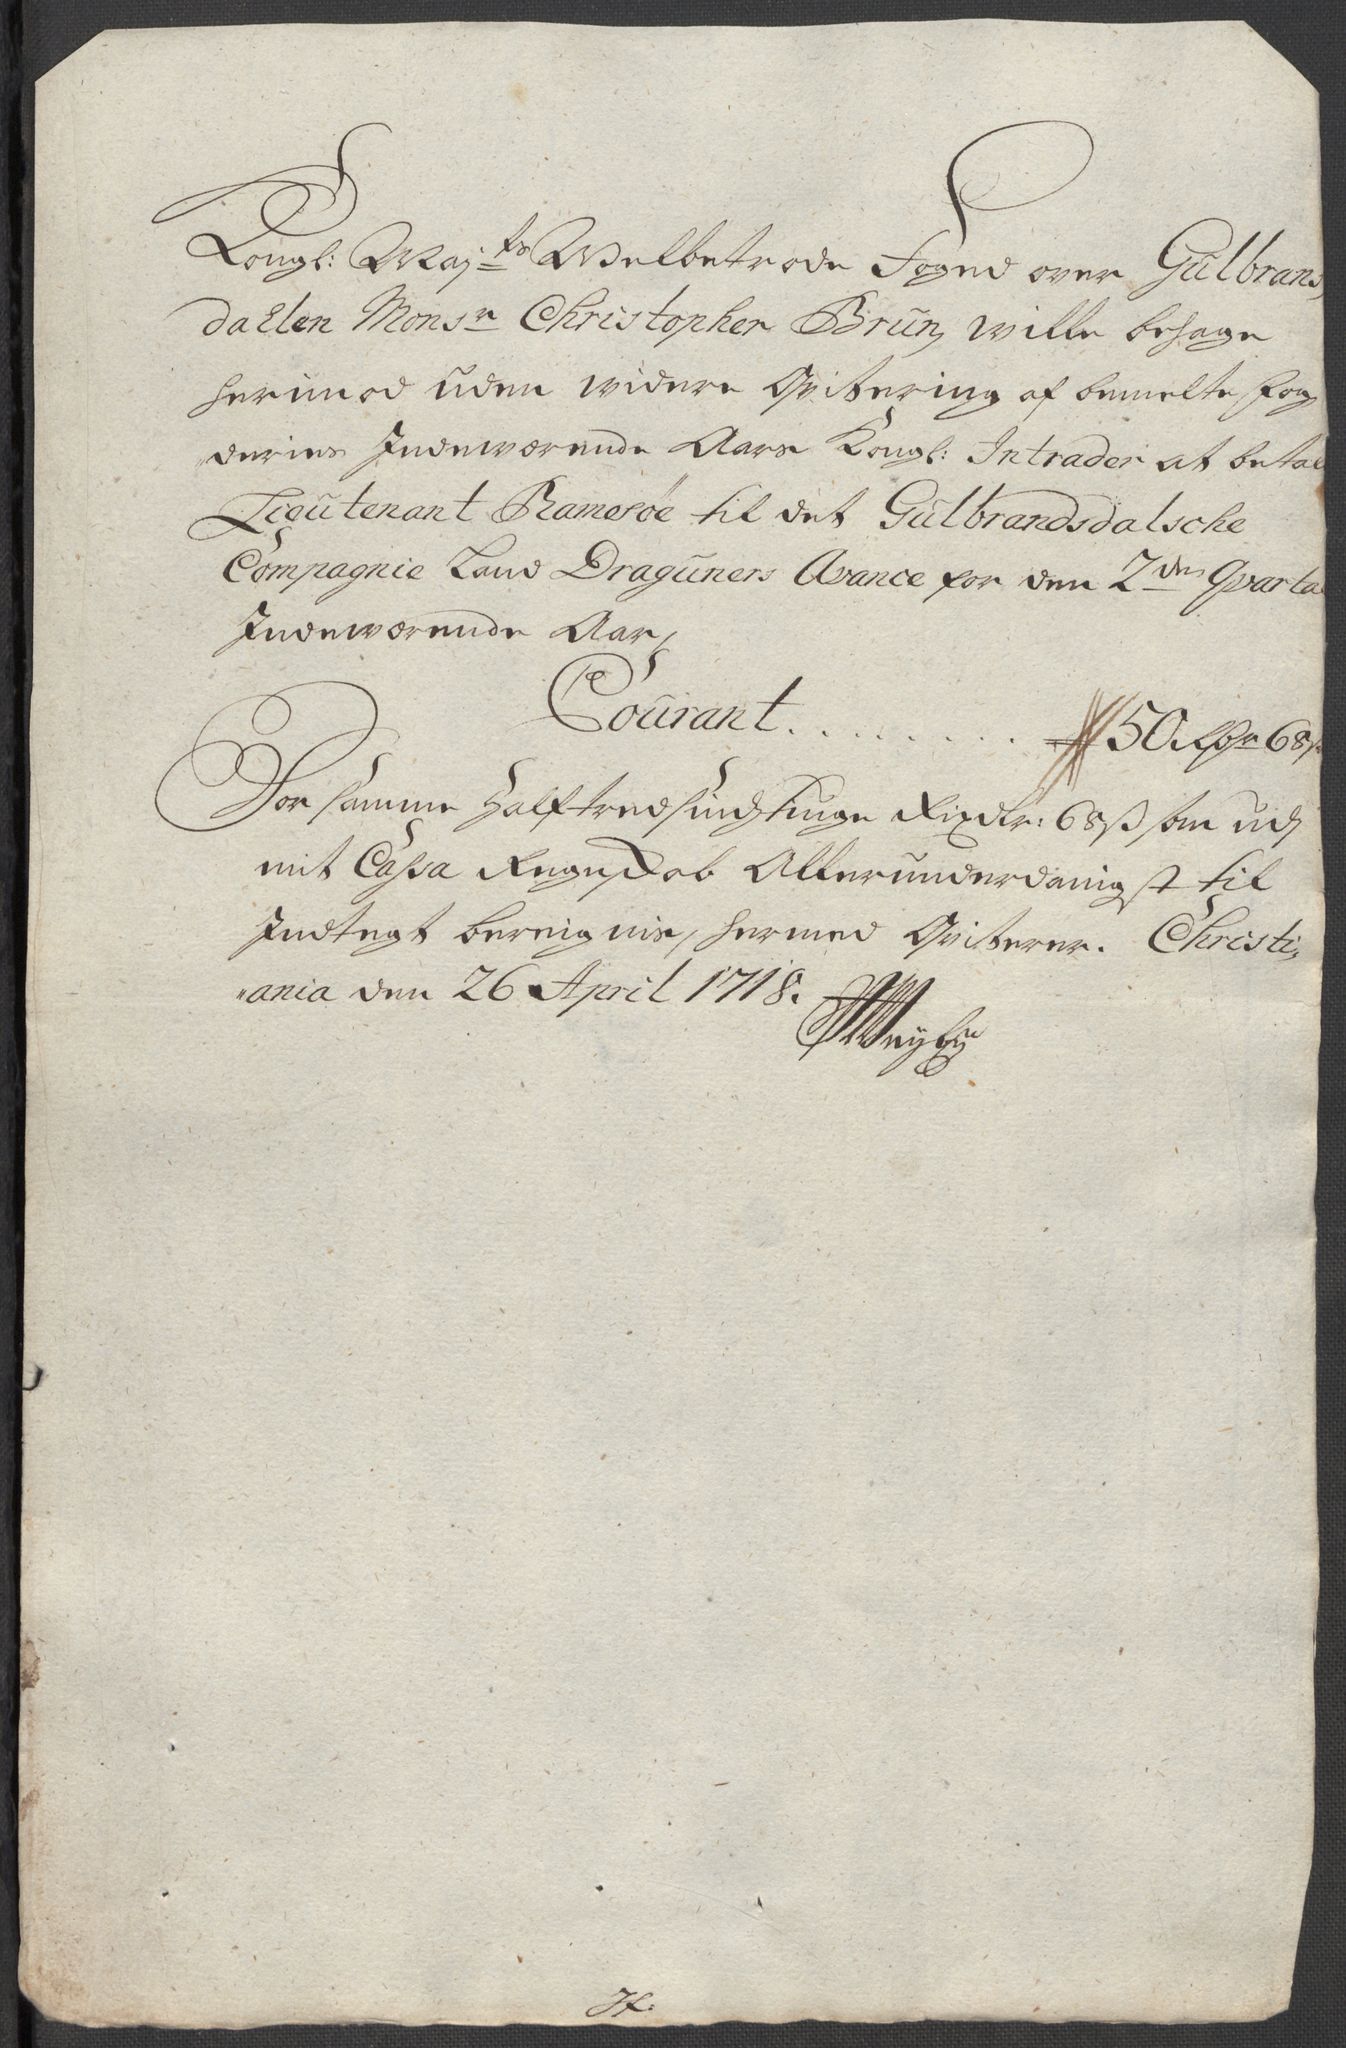 Kongl: Maj:ts Welbetrode Foged over Gülbrans,
dahlen Monsr Christopher Brün, wille behage
herimod uden widere Qvitering af bemelte fog,
deries Indeværende Aars Kongl: Intrader at betal
Lieutenant Ramsøe til det Gülbrandsdalsche
Compagnie Land Dragüners Avance for den 2den Qvarta
Indeværende Aar,
Courant . . . . . . . . . 50 Rdr 68ß
For samme Halftredsindstiuge Rixdlr: 68ß som udj
mit Cassa Regenskab Allerunderdanigst til
Indtegt bereignis, hermed Qviterer. Christi,
ania den 26 April 1718.